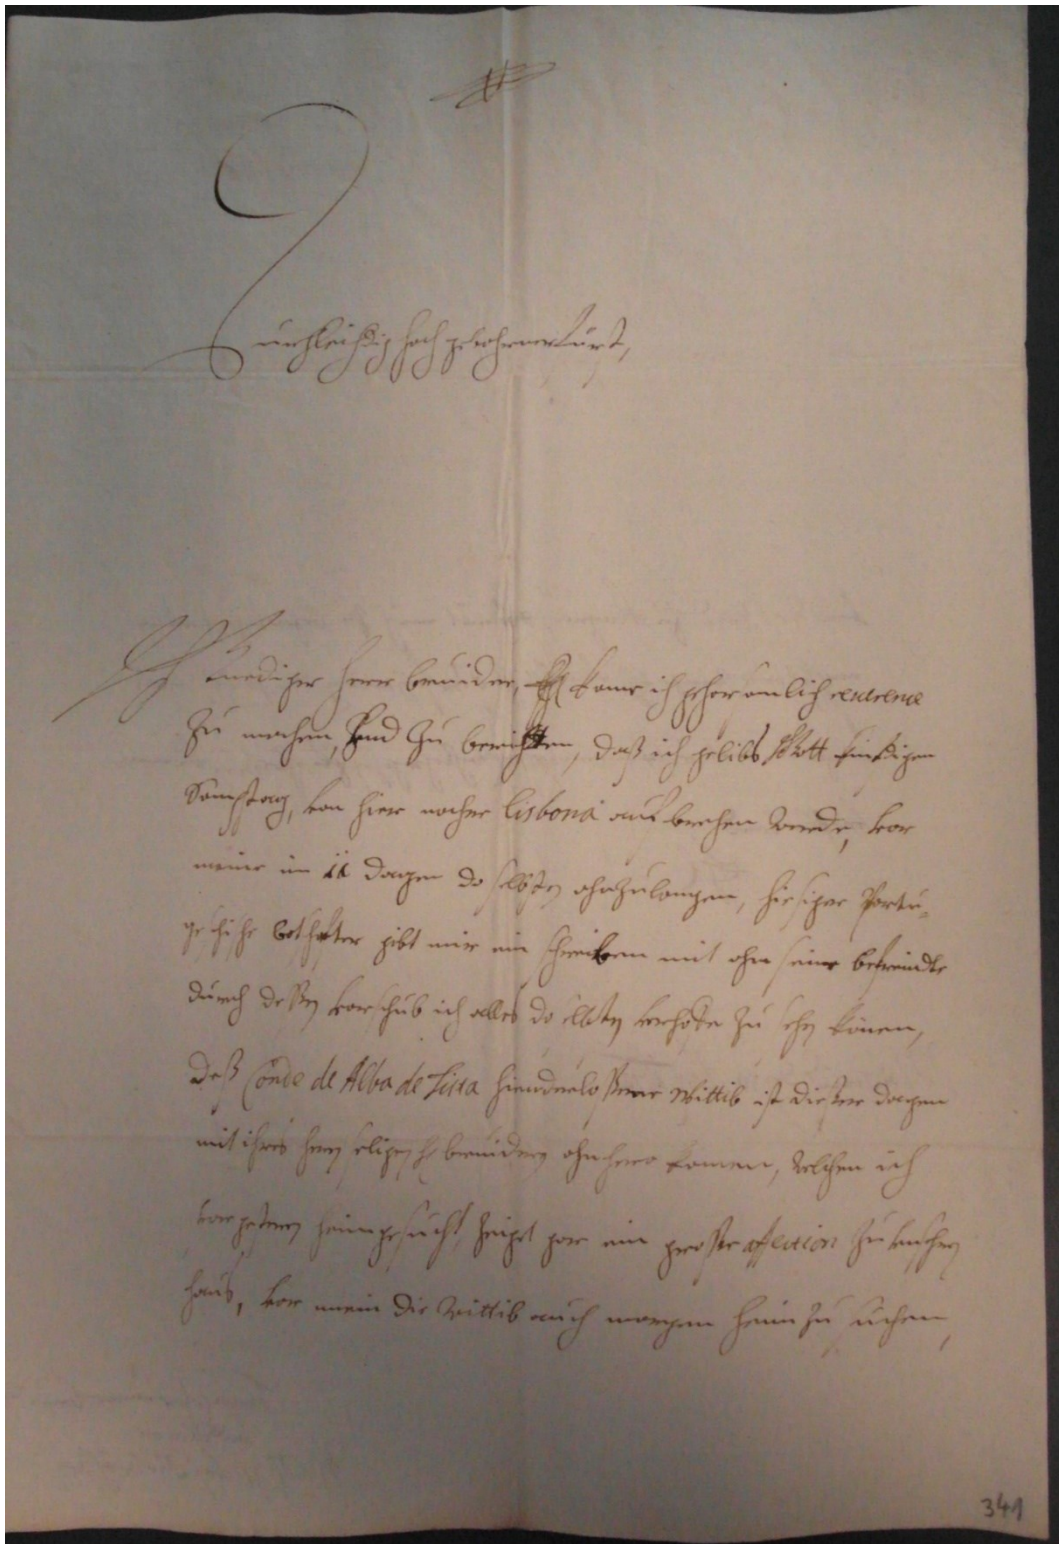 Durchleichtig hoch gebohrner Fürst,
Gnediger Herr bruider, kome ich gehorsamlich reverenz
zu machen, und zu berichten, daß ich geliebts Gott künftigen
Sambstag, von hier nacher lisbona auf brechen werde, ver
meine in 11 dagen do selbsten ahnzulangen, hiesiger Portu-
gesische botshafter gibt mir ein schreiben mit ahn seine befreindte
durch deßen vorschub ich alles do selbsten verhoffe zu sehen können,
Deß Conde de Alba de Lista hinderlaßene Wittib ist dießer dagen
mit ihres hern seligen bruidern ahnhero komen, welchen ich
vorgestern heimgesucht, zeiget gar ein große affection zu unsern
haus, ver mein die Wittib auch morgen heim zu suchen,
341